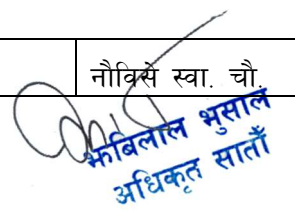 नौविसे स्वा. चौ.
झबिलाल भुसाल
अधिकृत सातौँ